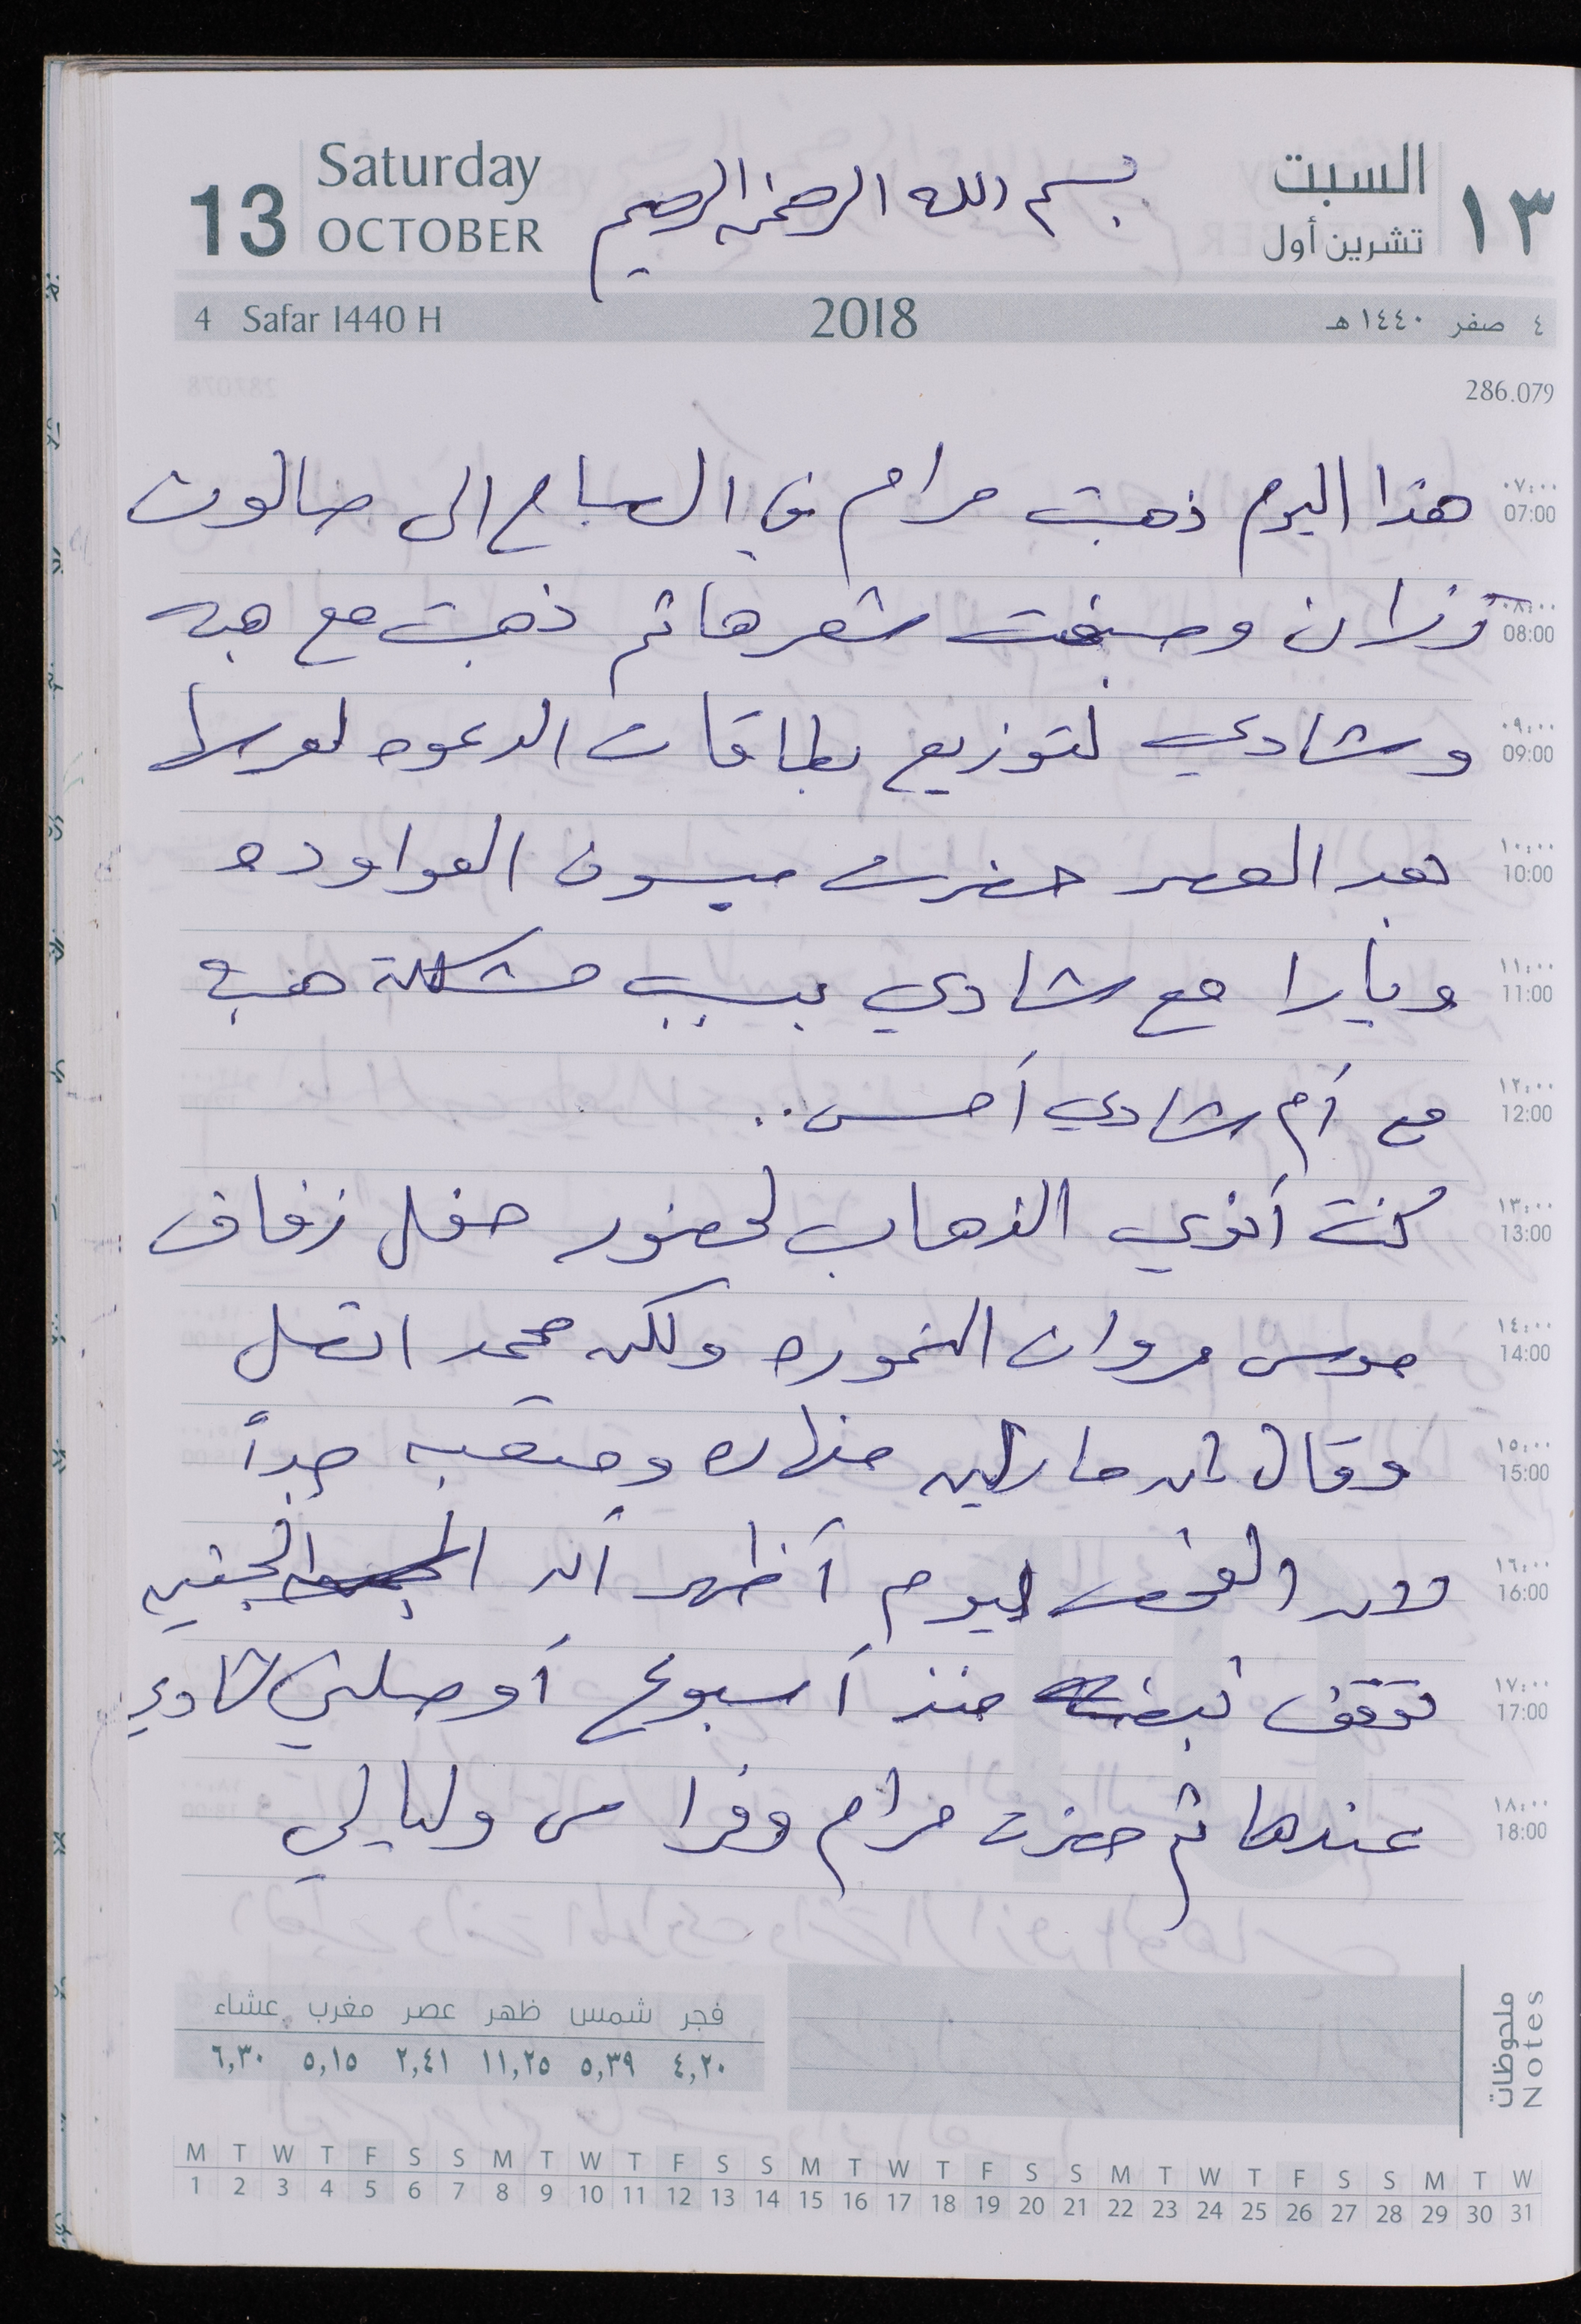 Saturday السبت
13 OCTOBER بسم الله الرحمن الرحيم تشرين أول ١٣
4 Safar 1440 H 2018 ٤ صفر ١٤٤٠ هـ
286.079
٠٧:٠٠ 07:00 هذا اليوم ذهبت مرام في الصباح الى صالون
٠٨:٠٠ 08:00 رزان وصبغت شعرها ثم ذهبت مع هبه
٠٩:٠٠ 09:00 وشادي لتوزيع بطاقات الدعوه لعرسها
١٠:٠٠ 10:00 بعد العصر حضرت ميسون العواوده
١١:٠٠ 11:00 ويارا مع شادي بسبب مشكلة هبه
١٢:٠٠ 12:00 مع أم شادي أمس..
١٣:٠٠ 13:00 كنت أنوي الذهاب لحضور حفل زفاف
١٤:٠٠ 14:00 موسى مروان النموره ولكن محمد اتصل
١٥:٠٠ 15:00 وقال بأن مارلين منهاره ومتعبه جداً
١٦:٠٠ 16:00 لان الفحص اليوم أظهر أن الجنين
١٧:٠٠ 17:00 توقف نبضه منذ أسبوع أوصلني شادي
١٨:٠٠ 18:00 عندها ثم حضرت مرام وفراس وليالي
ملحوظات Notes
فجر شمس ظهر عصر مغرب عشاء
٤,٢٠ ٥,٣٩ ١١,٢٥ ٢,٤١ ٥,١٥ ٦,٣٠
M T W T F S S M T W T F S S M T W T F S S M T W T F S S M T W
1 2 3 4 5 6 7 8 9 10 11 12 13 14 15 16 17 18 19 20 21 22 23 24 25 26 27 28 29 30 31